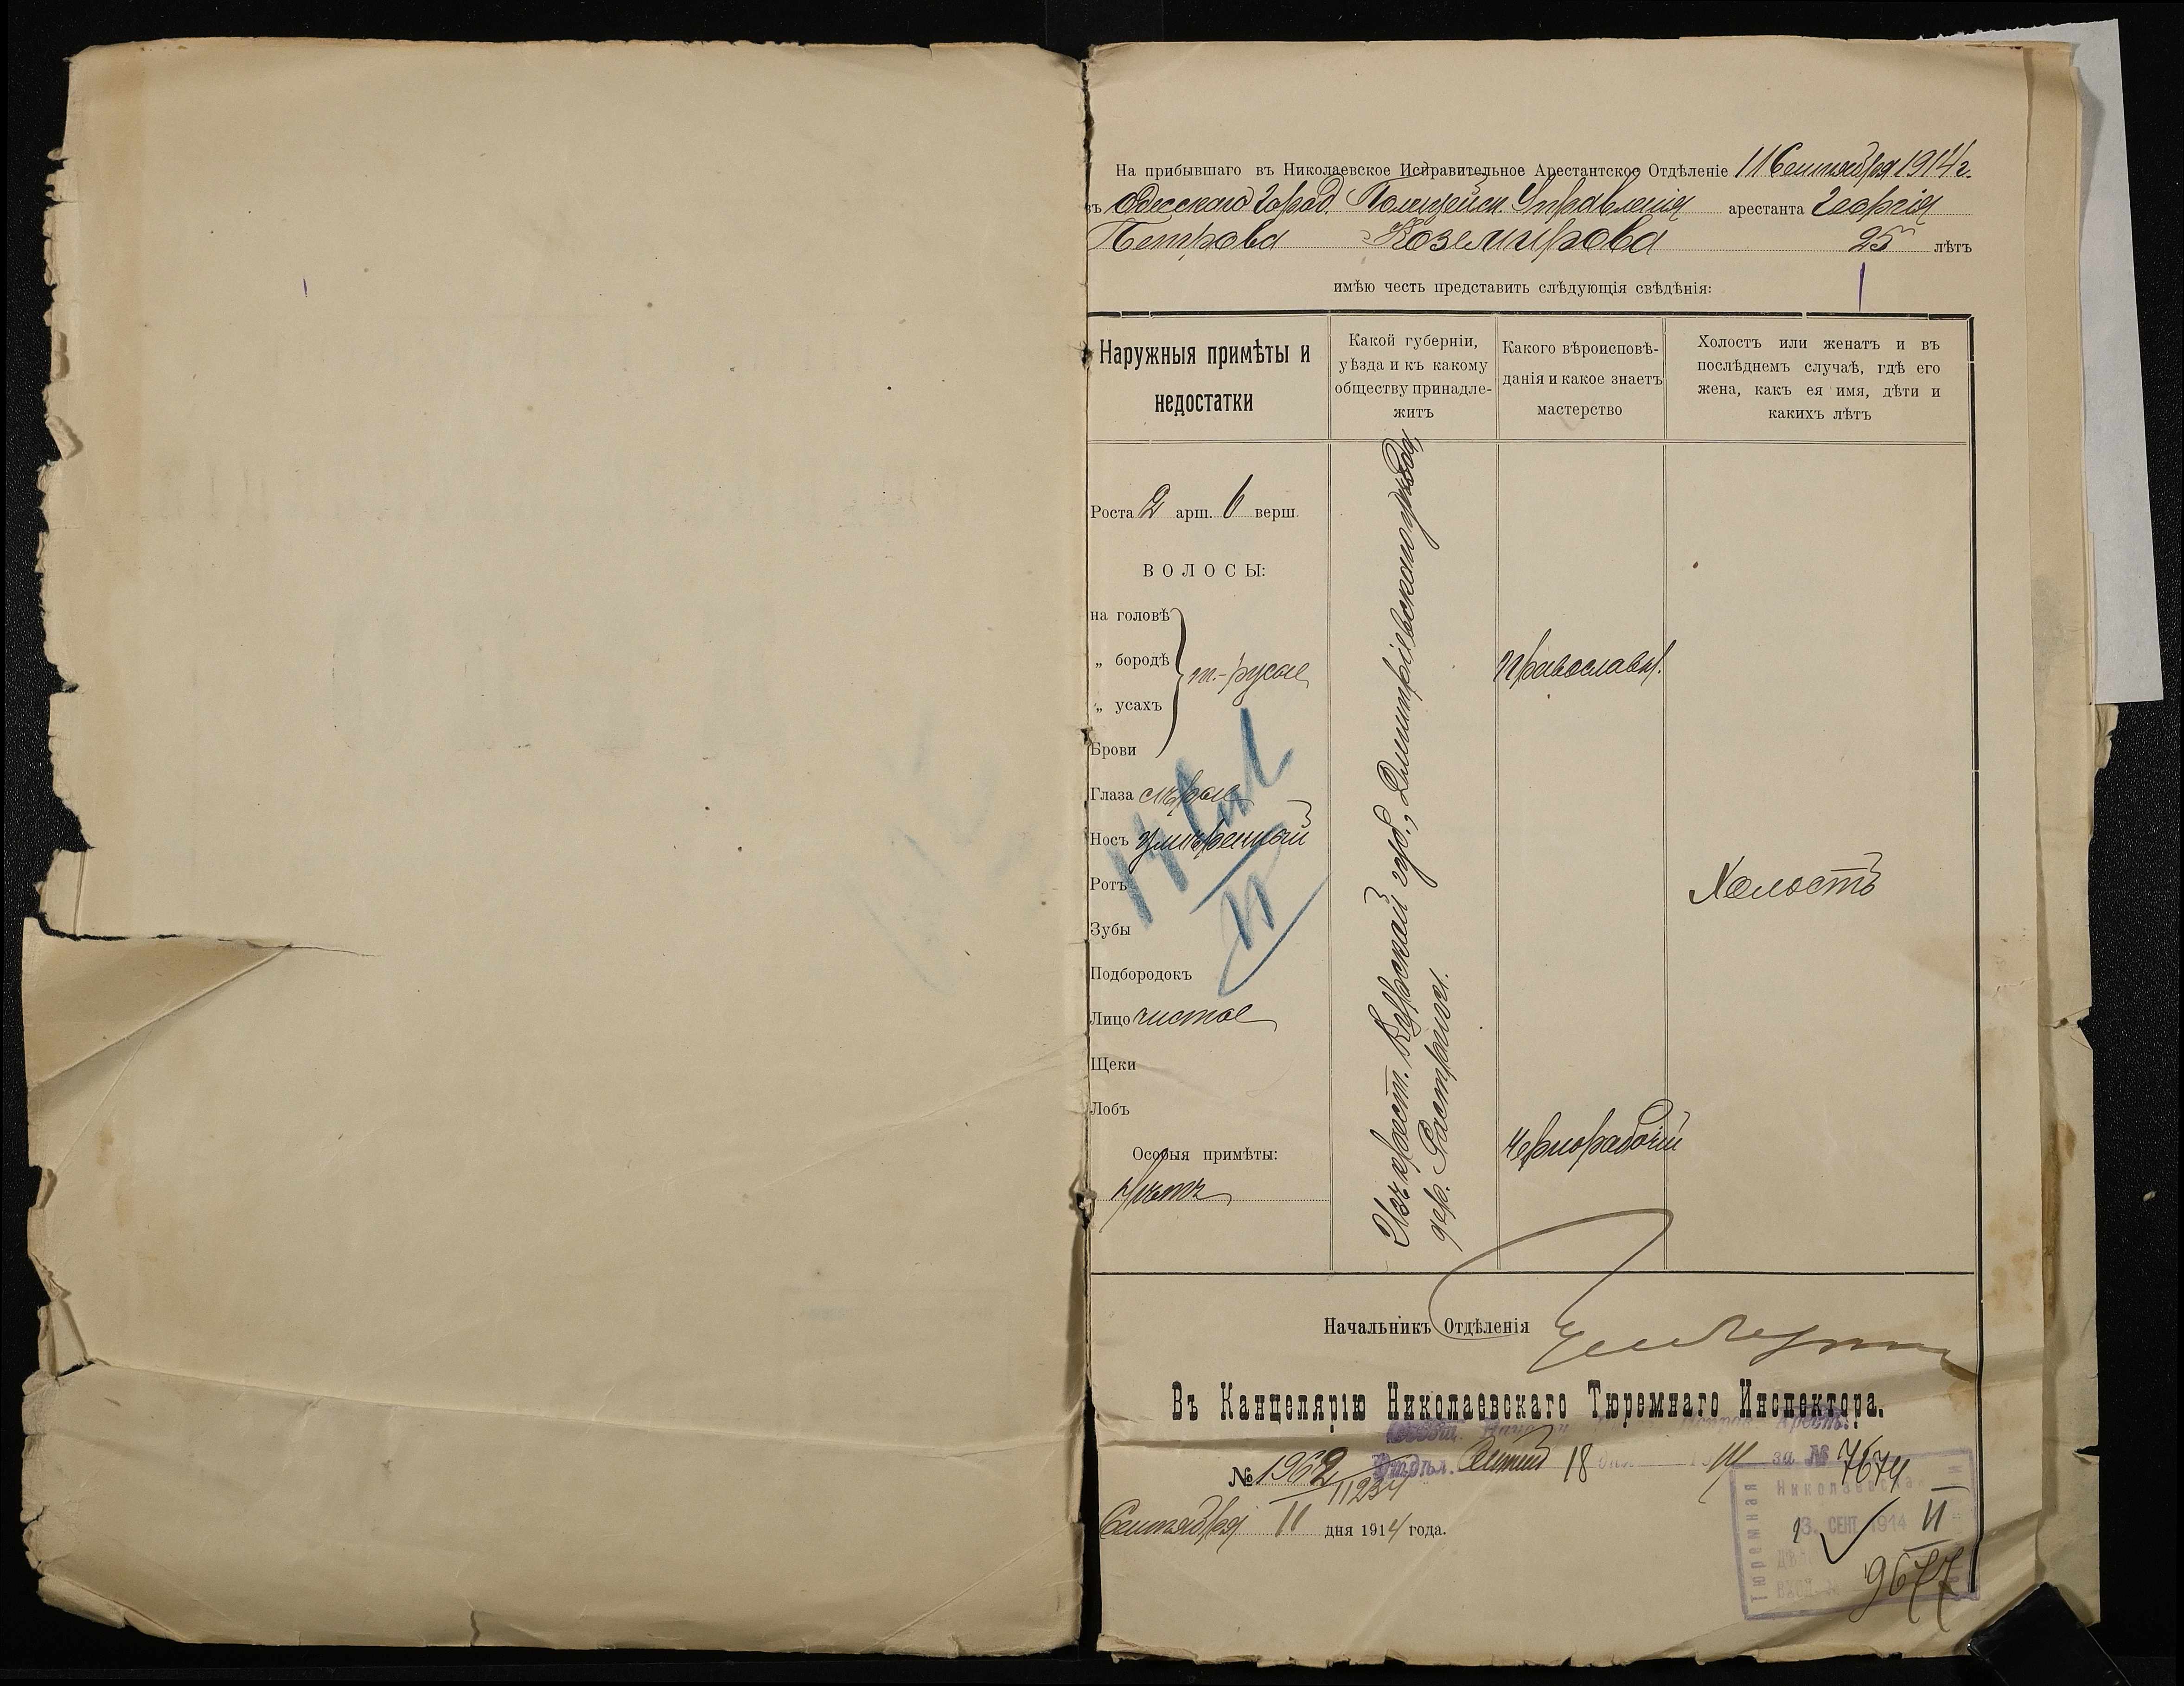 На прибывшаго въ Николаевское Исправительное Арестантское Отдѣленіе 11 Сентября 1914 г.
въ Одесскаго Город. Полицейск. Управленія арестанта Георгія
Петрова Коземирова 25 лѣтъ
имѣю честь представить слѣдующія свѣдѣнія:
Наружныя примѣты и
недостатки
Какой губерніи,
уѣзда и къ какому
обществу принадле-
житъ
Какого вѣроисповѣ-
данія и какое знаетъ
мастерство
Холостъ или женатъ и въ
послѣднемъ случаѣ, гдѣ его
жена, какъ ея имя, дѣти и
какихъ лѣтъ
Роста 2 арш. 6 верш.
ВОЛОСЫ:
на головѣ
„ бородѣ
т.-русые
„ усахъ
Брови
Глаза сѣрые
Носъ умѣренный
Ротъ
Зубы
Подбородокъ
Лицо чистое
Щеки
Лобъ
Особыя примѣты:
нѣтъ
Изъ крест. Курской губ., Дмитріевскаго уѣзда,
дер.
Православн.
Чернорабочій
Холостъ
Начальникъ Отдѣленія
Въ Канцелярію Николаевскаго Тюремнаго Инспектора.
№ 1962
11234
Отдѣл. 18 за № 7674
Сентября 11 дня 1914 года.
Тюремная
Николаевская
13. СЕНТ 1914
II
9677